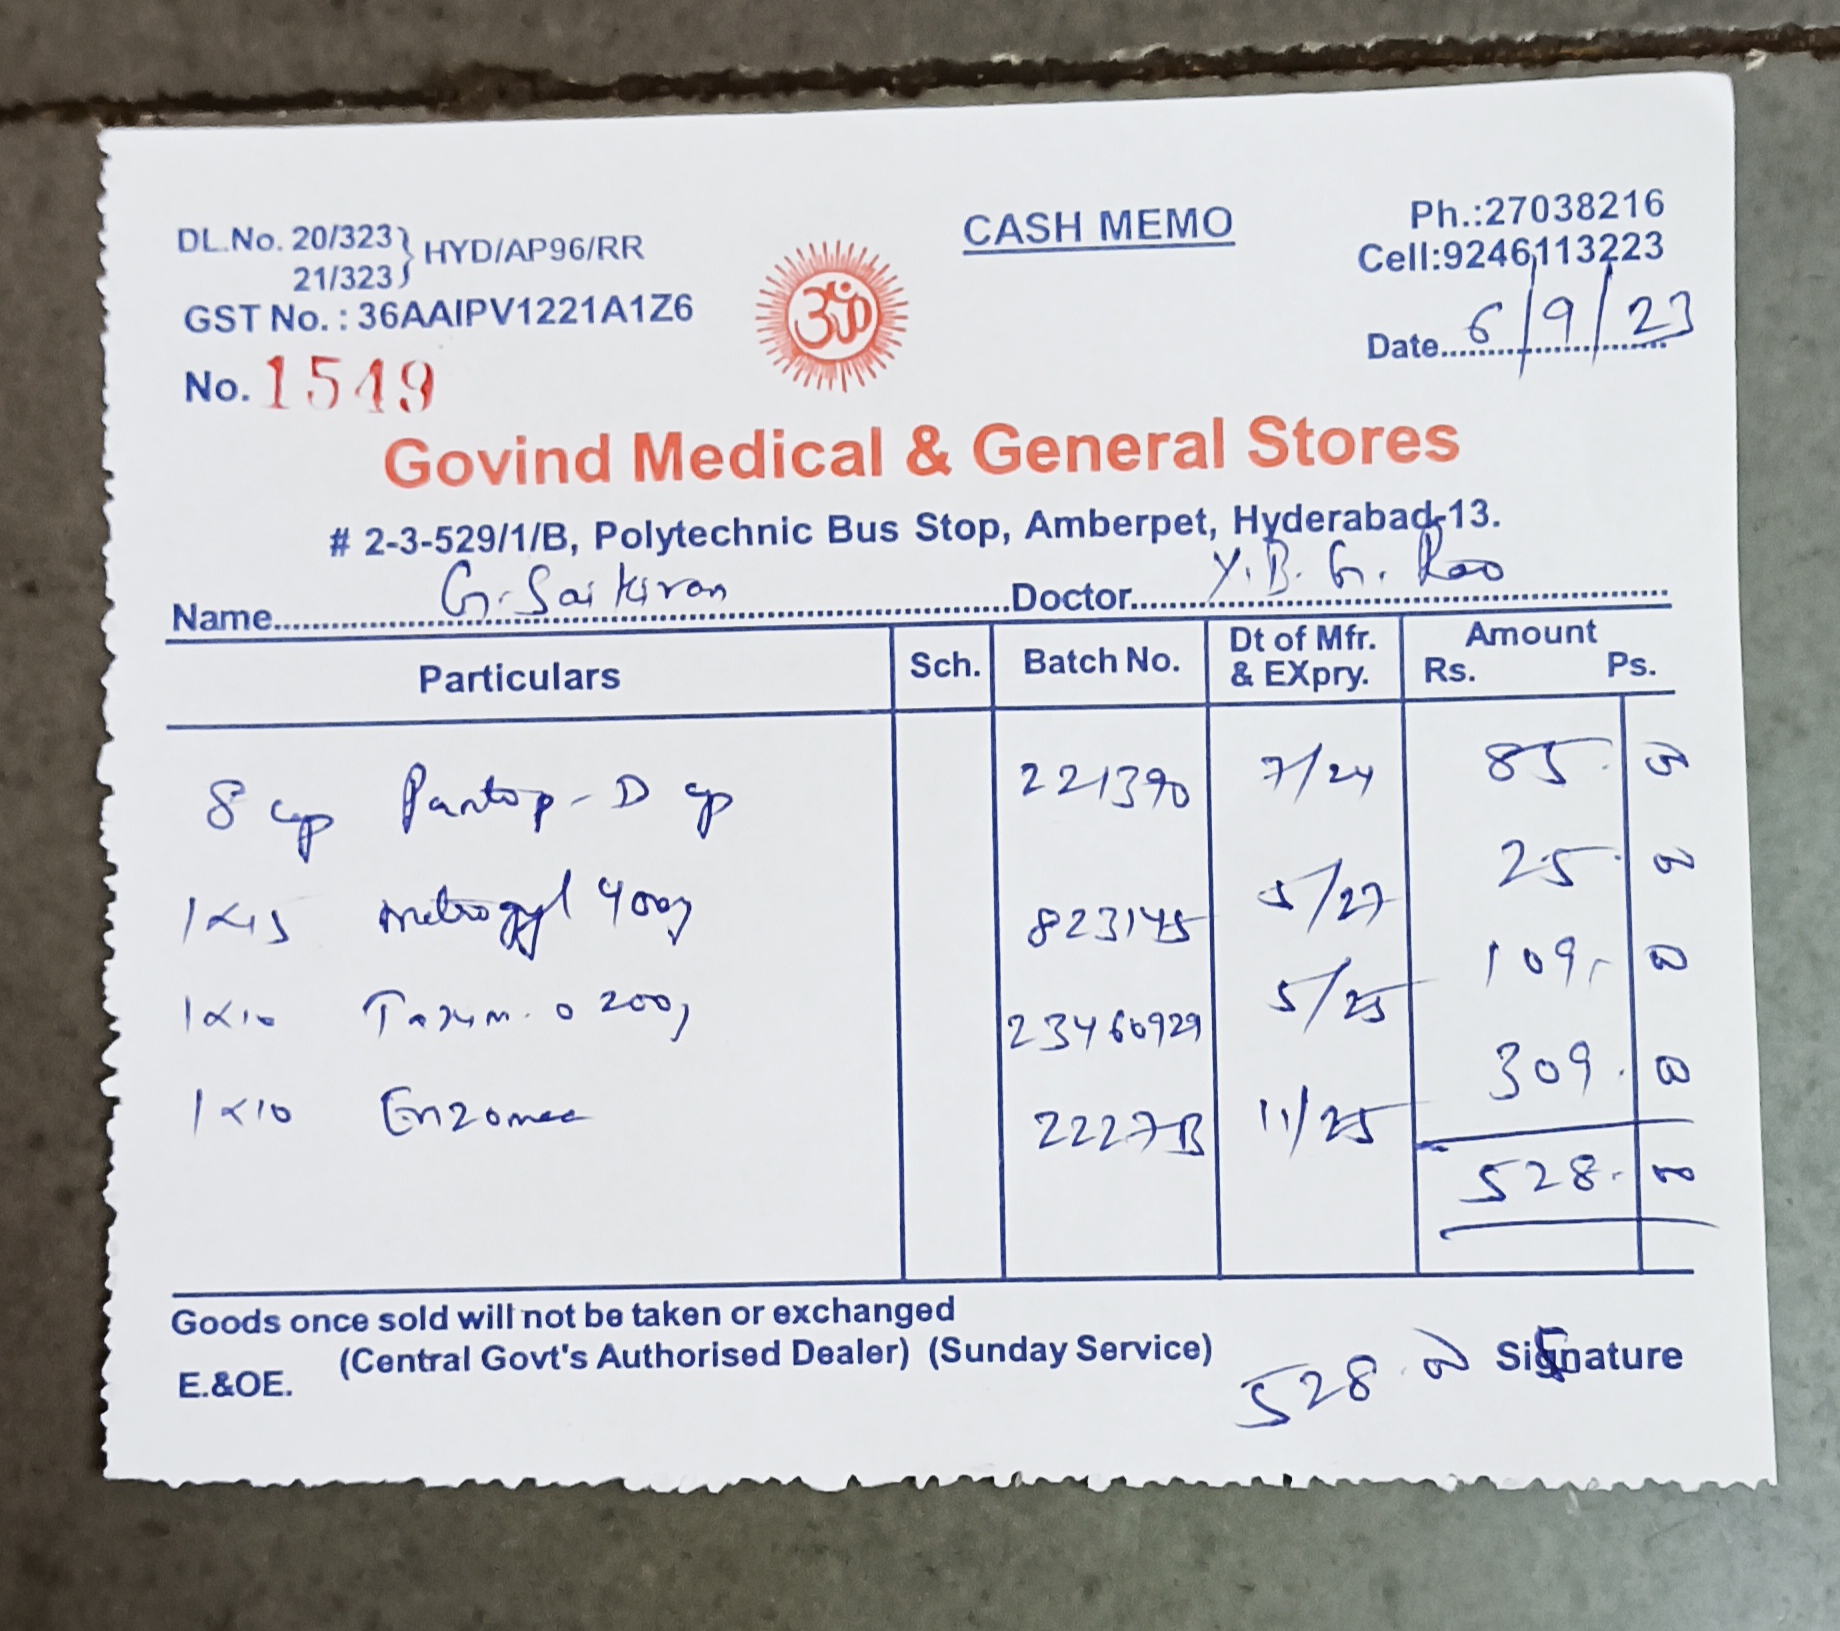 DL.No. 20/323 } HYD/AP96/RR
21/323
GST No. : 36AAIPV1221A1Z6
No. 1549
ॐ
CASH MEMO
Ph.:27038216
Cell:9246113223
Date 6/9/23
Govind Medical & General Stores
# 2-3-529/1/B, Polytechnic Bus Stop, Amberpet, Hyderabad-13.
Name G. Sai Kiran Doctor Y. B. G. Rao
Particulars Sch. Batch No. Dt of Mfr. & EXpry. Amount Rs. Ps.
8 cap Pantop-D cap 221390 7/24 85. 00
1x15 Metrogyl 400 823145 5/27 25. 00
1x10 Taxum. o 200 23460929 5/25 109. 00
1x10 2227B 11/25 309. 00
528. 00
Goods once sold will not be taken or exchanged
(Central Govt's Authorised Dealer) (Sunday Service)
E.&OE.
528. 00 Signature